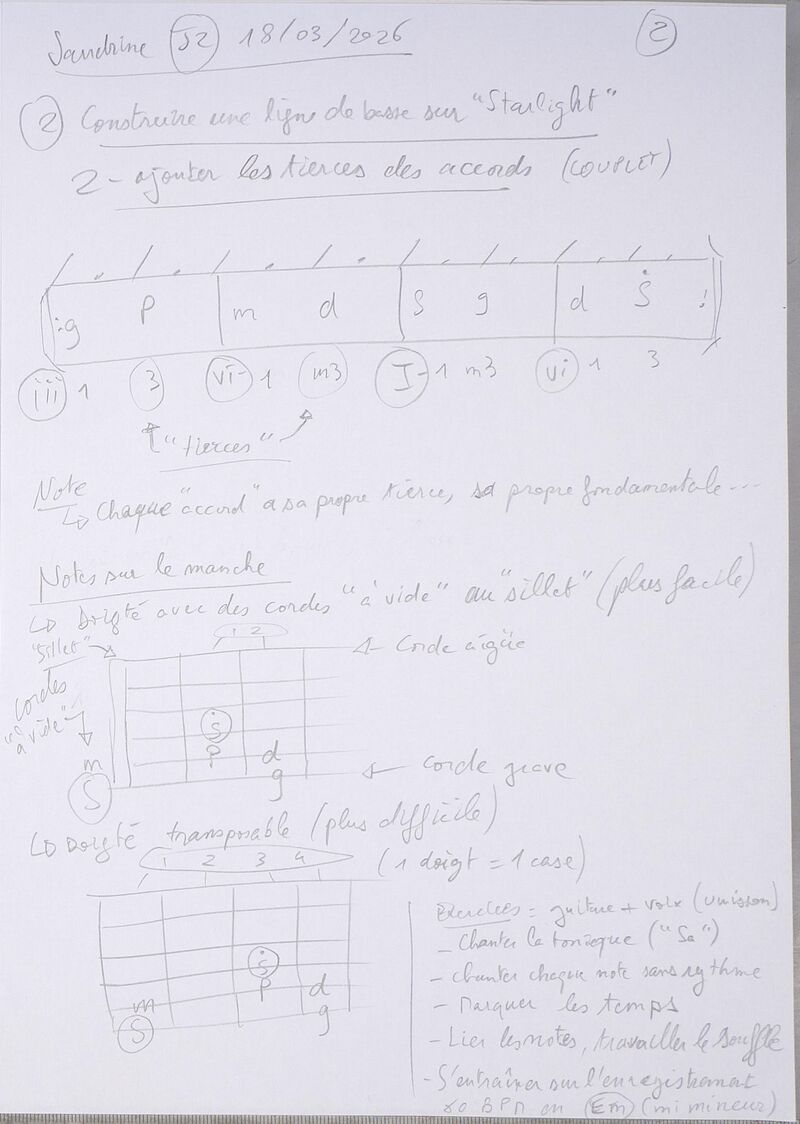 Sandrine S2 18/03/2026 2
2 Construire une ligne de basse sur "Starlight"
2 - ajouter les tierces des accords (COUPLET)
g P m d S g d Ṡ
iii 1 3 vi- 1 m3 I- 1 m3 vi 1 3
"tierces"
Note
↳ Chaque "accord" a sa propre tierce, sa propre fondamentale ...
Notes sur le manche
↳ Doigté avec des cordes "à vide" au "sillet" (plus facile)
1 2
"Sillet" ← Corde aigüe
cordes
"à vide"
Ṡ
P d
m g
S ← corde grave
↳ Doigté transposable (plus difficile)
1 2 3 4 (1 doigt = 1 case)
Ṡ
P d
m g
S
Exercices = guitare + voix (unisson)
- Chanter la tonique ("Sa")
- chanter chaque note sans rythme
- Marquer les temps
- Lier les notes, travailler le souffle
- S'entraîner sur l'enregistrement
BPM en Em (mi mineur)